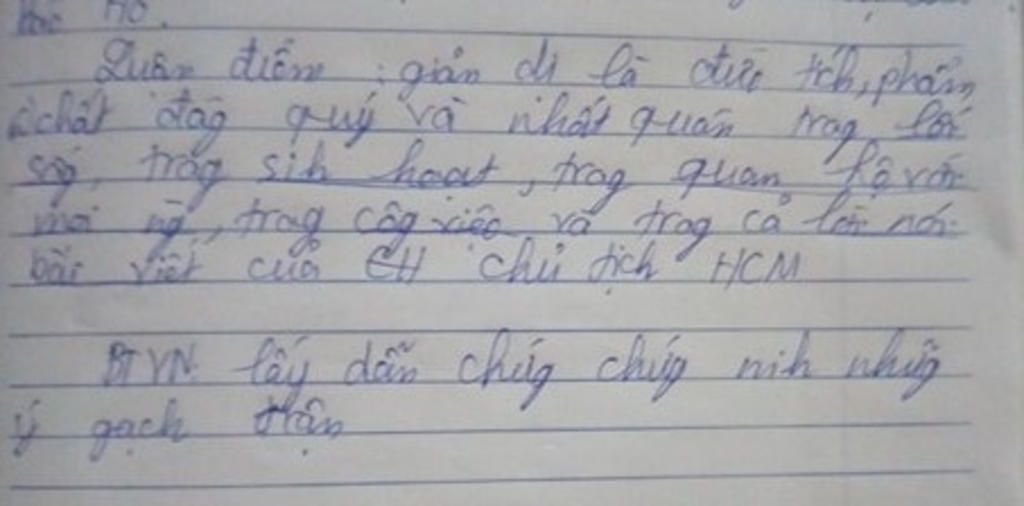 Hồ.
Quan điểm : giản dị là đức tíh, phẩm
chất đág quý và nhất quán trog lối
sốg, trog sih hoạt, trog quan hệ với
mọi ng', trog côg việc và trog cả lời nói
bài viết của CH chủ tịch HCM
BTVN: lấy dẫn chứg chứg mih nhữg
ý gạch chân